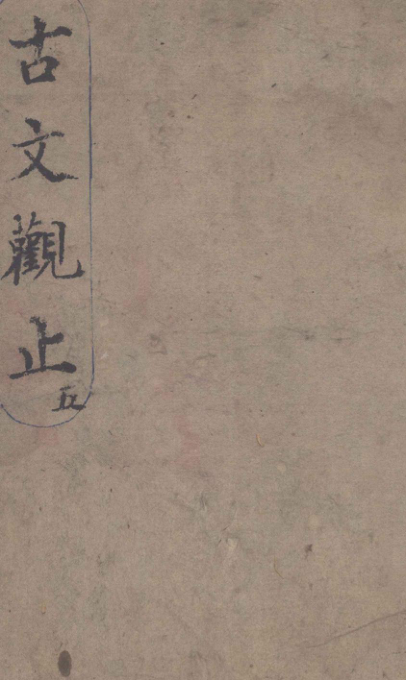 古文觀止
五